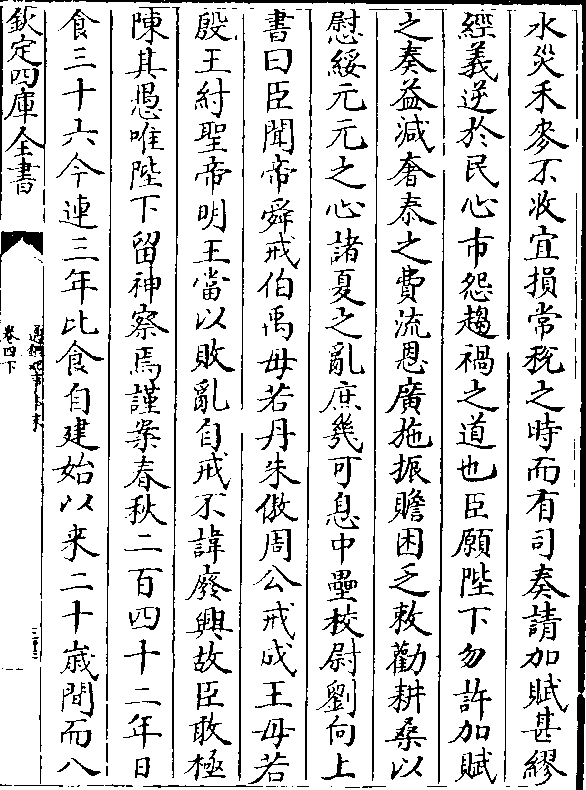 水災禾麥不收宜損常稅之時而有司奏請加賦甚繆
經義逆於民心市怨趨禍之道也臣願陛下勿許加賦
之奏益減奢泰之費流恩廣施振贍困乏敕勸耕桑以
慰綏元元之心諸夏之亂庶幾可息中壘校尉劉向上
書曰臣聞帝舜戒伯禹毋若丹朱傲周公戒成王毋若
殷王紂聖帝明王當以敗亂自戒不諱廢興故臣敢極
陳其愚唯陛下留神察焉謹案春秋二百四十二年日
食三十六今連三年比食自建始以来二十歲間而八
欽定四庫全書
卷四下